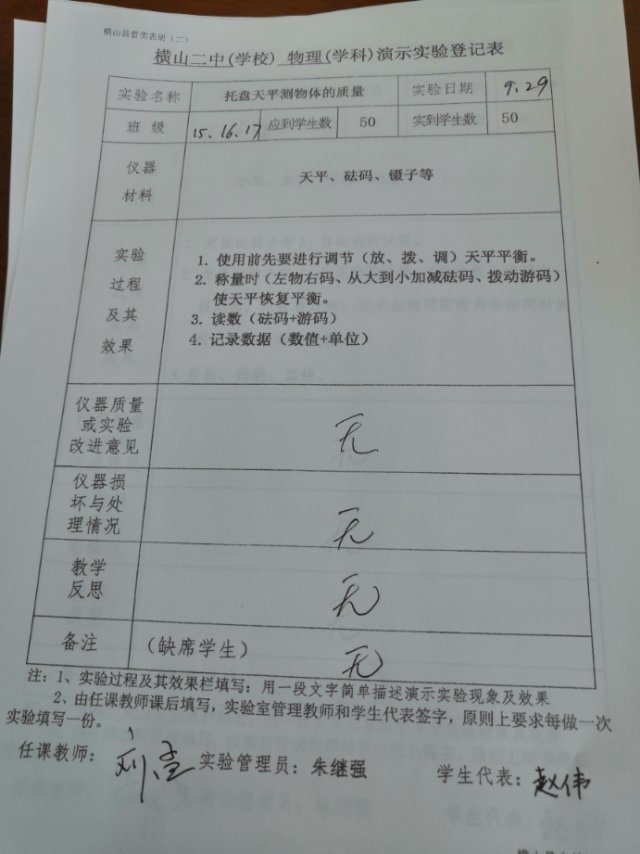 横山县普实表册（二）
横山二中(学校) 物理(学科)演示实验登记表
实验名称 托盘天平测物体的质量 实验日期 9.29
班 级 15.16.17 应到学生数 50 实到学生数 50
仪器
材料
天平、砝码、镊子等
实验
过程
及其
效果
1. 使用前先要进行调节（放、拨、调）天平平衡。
2. 称量时（左物右码、从大到小加减砝码、拨动游码）
使天平恢复平衡。
3. 读数（砝码+游码）
4. 记录数据（数值+单位）
仪器质量
或实验
改进意见
无
仪器损
坏与处
理情况
无
教学
反思
无
备注 （缺席学生） 无
注：1、实验过程及其效果栏填写：用一段文字简单描述演示实验现象及效果
2、由任课教师课后填写，实验室管理教师和学生代表签字，原则上要求每做一次
实验填写一份。
任课教师： 刘 实验管理员：朱继强 学生代表：赵伟